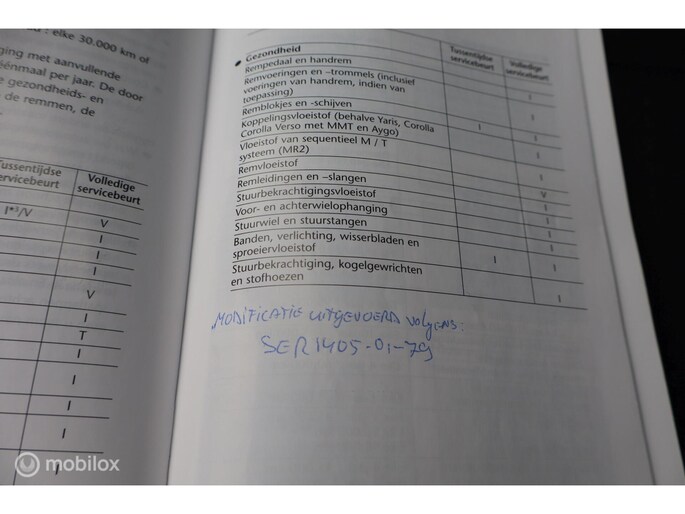 : elke 30.000 km of
ging met aanvullende
éénmaal per jaar. De door
e gezondheids- en
de remmen, de
Tussentijdse servicebeurt
Volledige servicebeurt
I*³/V V
I
I
I
V
I
T
I
I
I
Gezondheid
Tussentijdse servicebeurt
Volledige servicebeurt
Rempedaal en handrem
Remvoeringen en –trommels (inclusief
voeringen van handrem, indien van
toepassing) I
Remblokjes en -schijven I
Koppelingsvloeistof (behalve Yaris, Corolla
Corolla Verso met MMT en Aygo) I I
Vloeistof van sequentieel M / T
systeem (MR2) I
Remvloeistof
Remleidingen en –slangen I
Stuurbekrachtigingsvloeistof V
Voor- en achterwielophanging I
Stuurwiel en stuurstangen I
Banden, verlichting, wisserbladen en
sproeiervloeistof I I
Stuurbekrachtiging, kogelgewrichten
en stofhoezen I
MODIFICATIE UITGEVOERD VOLGENS:
SER1405-01-79
mobilox